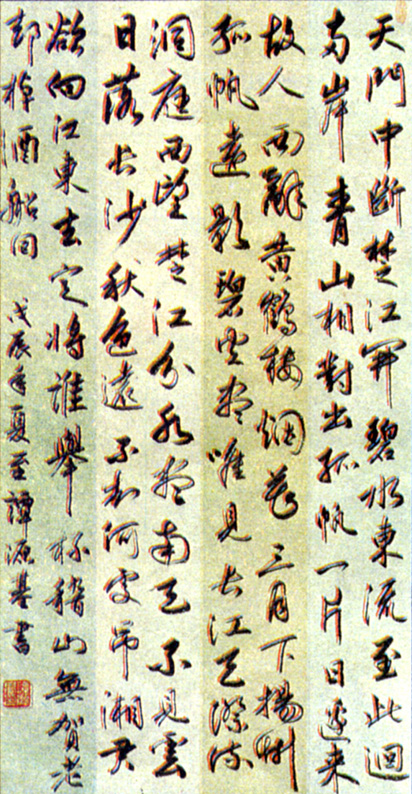 天門中断楚江開碧水東流至此迴
兩岸青山相對出孤帆一片日邊來
故人西辭黃鶴樓烟花三月下揚州
孤帆遠影碧空盡唯見長江天際流
洞庭西望楚江分水盡南天不見雲
日落長沙秋色遠不知何處吊湘君
欲向江東去定將誰舉杯稽山無賀老
却棹酒船回 戊辰年夏至譚源基書